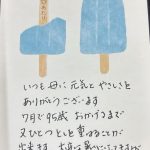 いつも母に元気とやさしさを
ありがとうございます
7月で95歳 おかげさまで
又ひとつとしを重ねることが
出来ます